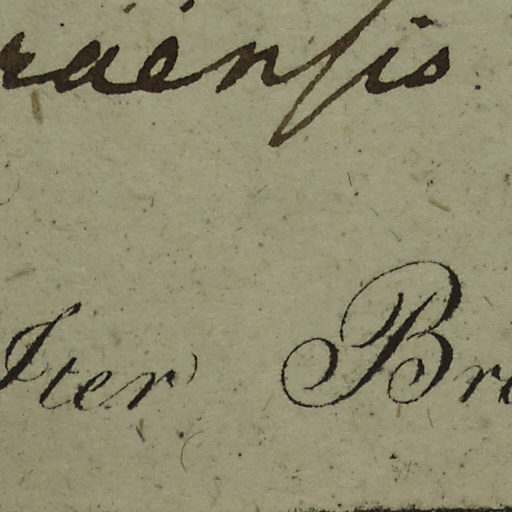 raënsis
Iter Bra